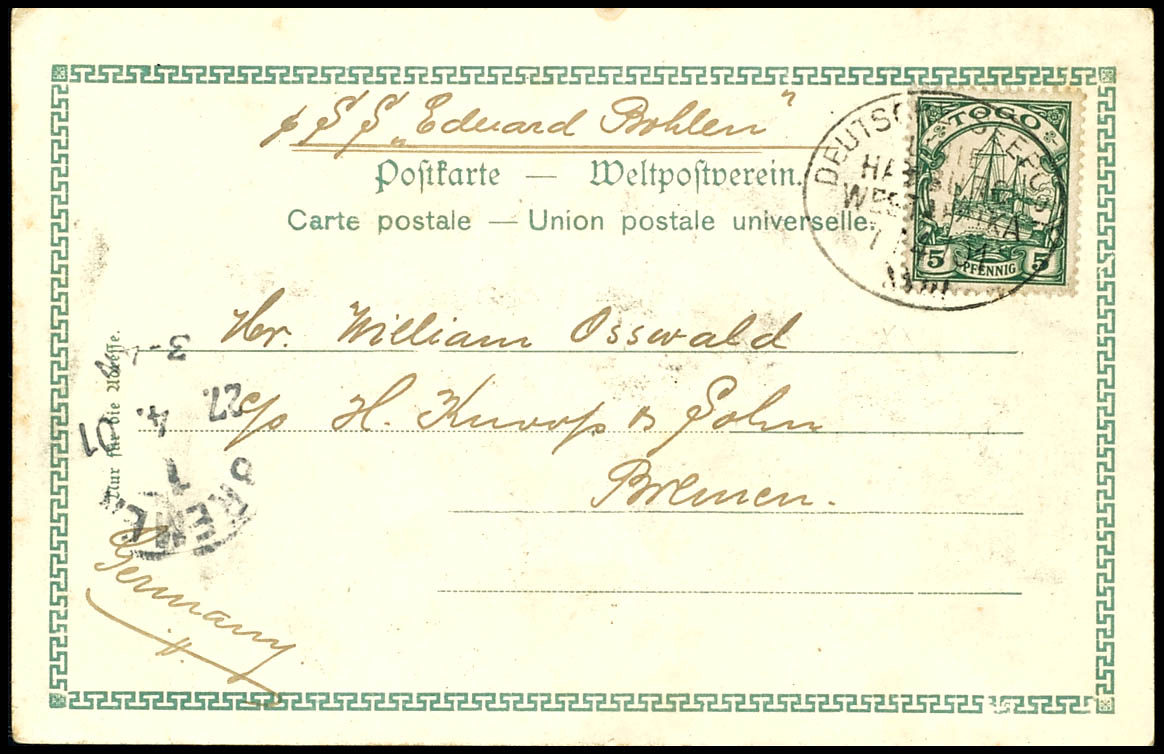 p SS „Eduard Bohlen"
Postkarte — Weltpostverein.
Carte postale — Union postale universelle.
TOGO
5 PFENNIG 5
DEUTSCHE SEEPOST
LINIE
HAMBURG-
WESTAFRIKA
XXIII
Hr. William Osswald
c/o H. Knoop & Sohn
Bremen.
Germany
Nur für die Adresse.
BREMEN
1
27.
4.
01